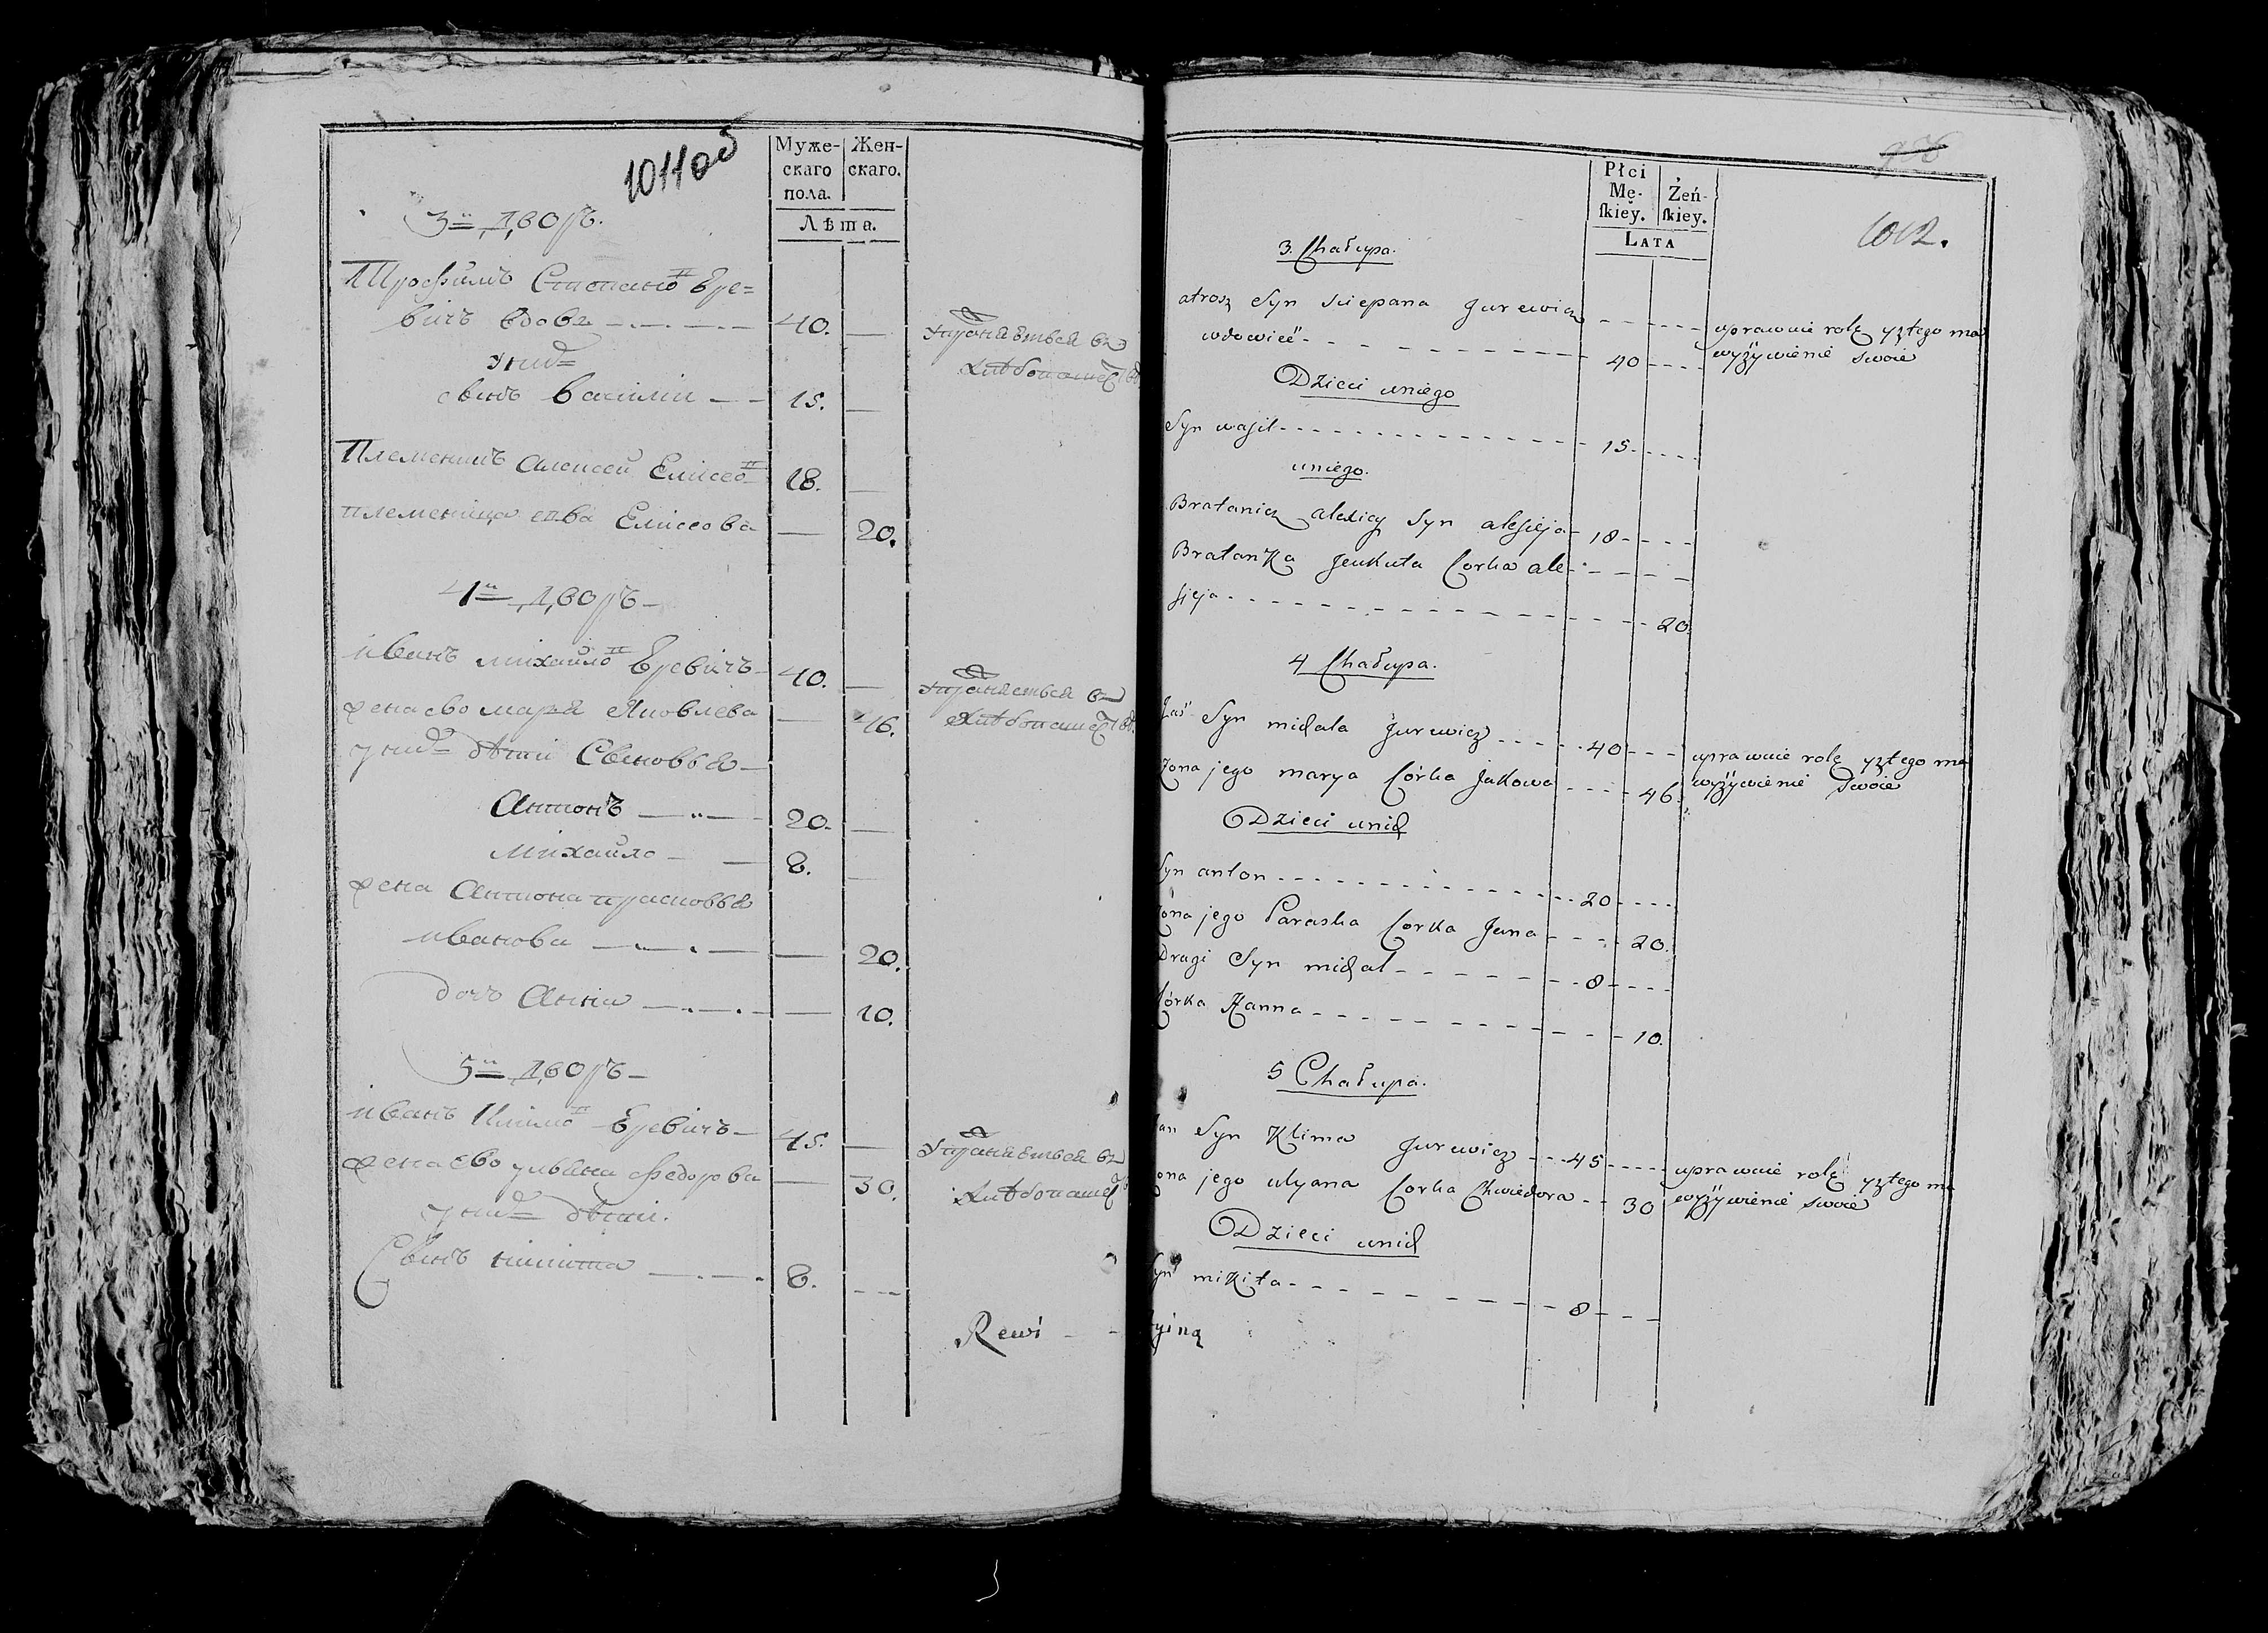 1011об
Муже-
скаго
пола.
Жен-
скаго.
Лѣта.
3й Дворъ.
Трофимъ Степано Юре=
вичъ вдовъ 40. —
унид
сынъ василiй 15. —
Племеникъ Алексей Елисео 18. —
племеница Елисеова — 20.
4й Дворъ
иванъ михайло Юревичъ 40. —
жена ево марья Яковлева — 46.
у нихъ дѣти Сыновья
Антонъ 20. —
михайло 8. —
жена Антона прасковья
иванова — 20.
дочь Анна — 10.
5й Дворъ
иванъ Климо Юревичъ 45. —
жена ево ульяна федорова — 30.
у нихъ дѣти.
Сынъ никита 8.
Rewi - -
956
1012.
Płci
Mę-
ſkiey.
Żeń-
ſkiey.
LATA
3. Chałupa.
atrosz Syn sciepana Jurewicz
wdowieć 40
uprawuie rolę yztego ma
wyżywienie swoie
Dzieci uniego
Syn waſil 15
uniego.
Bratanicz alexiey Syn aleſieja 18
Bratanka Jeukuta Corka ale-
ſieja 20.
4 Chałupa.
Jaś Syn michala Jurewicz 40
uprawuie rolę yztego ma
wyżywienie swoie
Żona jego marya Córka Jakowa 46.
Dzieci unich
Syn anton 20
żona jego Paraska Corka Jana 20.
Drugi Syn michal 8
Córka Hanna 10.
5 Chałupa.
Jan Syn Klima Jurewicz 45
uprawuie rolę yztego ma
wyżywienie swoie
żona jego ulyana Corka Chwiedora 30
Dzieci unich
Syn mikita 8